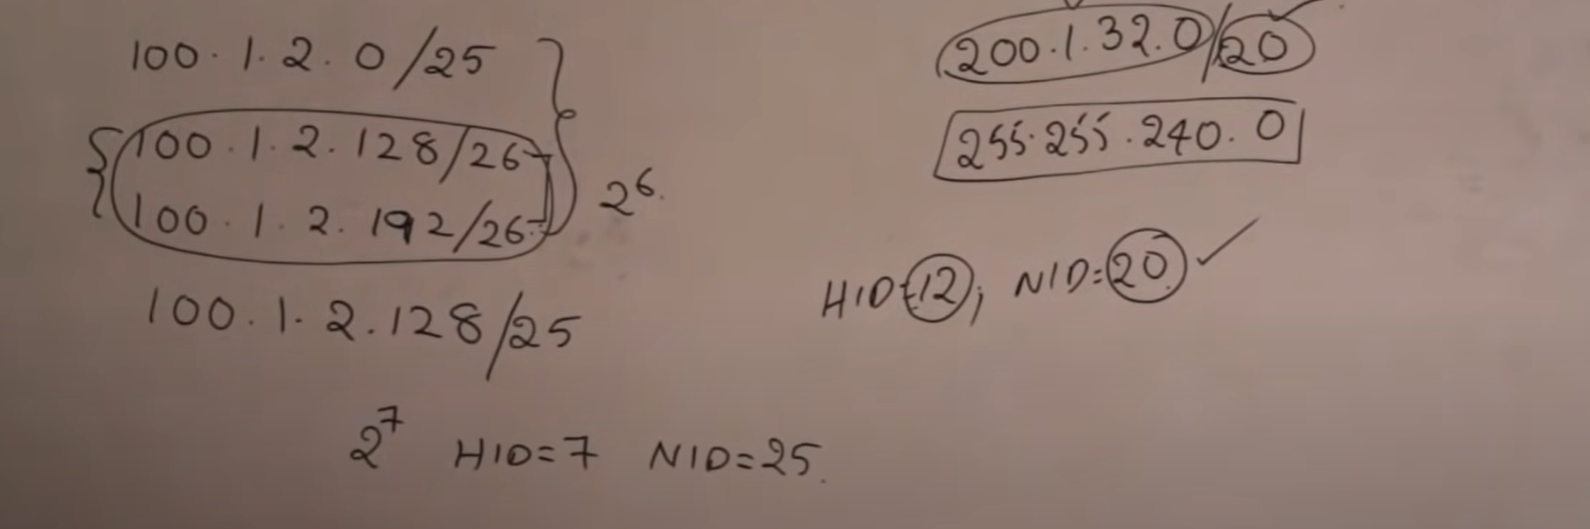 100.1.2.0/25
100.1.2.128/26
100.1.2.192/26
2^6.
100.1.2.128/25
2^7 HID=7 NID=25.
200.1.32.0/20
255.255.240.0
HID=12; NID=20